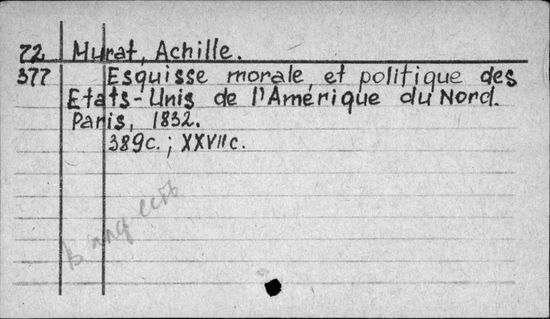 72 Murat, Achille.
377 Esquisse morale et politique des
Etats-Unis de l'Amérique du Nord.
Paris, 1832.
389c.; XXVIIc.
В алф есть